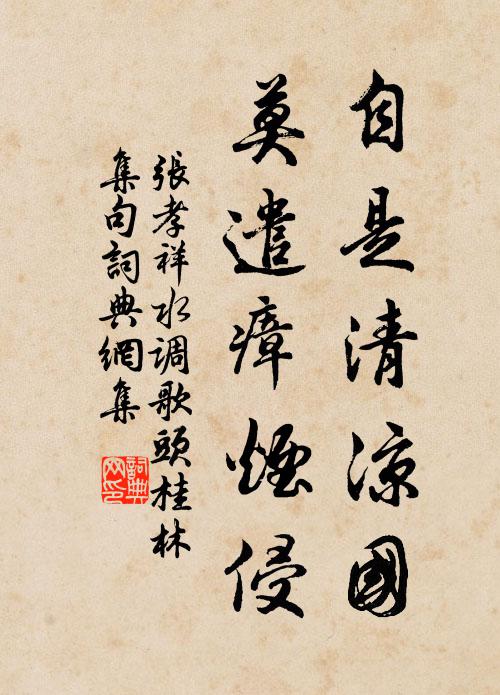 自是清凉國
莫遣瘴煙侵
張孝祥水调歌頭桂林
集句詞典網集
詞典網印